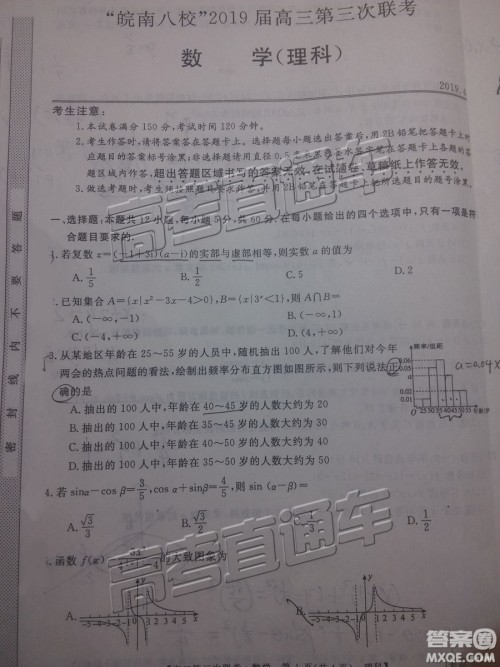 “皖南八校”2019届高三第三次联考
数　学(理科)
2019.4
考生注意：
1.本试卷满分150分,考试时间120分钟。
2.考生作答时,请将答案答在答题卡上。选择题每小题选出答案后,用2B铅笔把答题卡上对
应题目的答案标号涂黑;非选择题请用直径0.5毫米黑色
题区域内作答,超出答题区域书写的答案无效,在试题卷、草稿纸上作答无效。
3.做选考题时,考生须按照题目要求作答,并用2B铅笔在答题卡上把所选题目的题号涂黑。
一、选择题:本题共12小题,每小题5分,共60分。在每小题给出的四个选项中,只有一项是符
合题目要求的.
1.若复数z=(-1+3i)(a-i)的实部与虚部相等,则实数a的值为
A.1/5 B.1/2 C.5 D.2
2.已知集合A={x|x²-3x-4>0},B={x|3ˣ<1},则A∩B=
A.(-∞,-1) B.(-∞,1)
C.(-4,+∞) D.(4,+∞)
3.从某地区年龄在25~55岁的人员中,随机抽出100人,了解他们对今年
两会的热点问题的看法,绘制出频率分布直方图如图所示,则下列说法正
确的是
A.抽出的100人中,年龄在40~45岁的人数大约为20
B.抽出的100人中,年龄在35~45岁的人数大约为30
C.抽出的100人中,年龄在35~50岁的人数大约为40
D.抽出的100人中,年龄在35~50岁的人数大约为50
频率/组距
0.06
0.05
a
0.02
0.01
0 25 30 35 40 45 50 55 年龄/岁
a=0.04
4.若sinα-cosβ=3/5,cosα+sinβ=4/5,则sin(α-β)=
A.√3/3 B.√3/2 C. D.1/2
5.函数f(x)= 的大致图象为
A.
B.
y
x
-5 -4 -3 -2 -1 0 1 2 3 4 5
高考直通车
高考直通车
高考直通车
答案圈
MXQE.COM
密 封 线 内 不 要 答 题